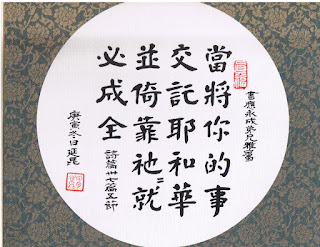 書應永成弟兄雅屬
當將你的事
交託耶和華
並倚靠祂就
必成全
詩篇卅七篇五節
庚寅冬日延昆